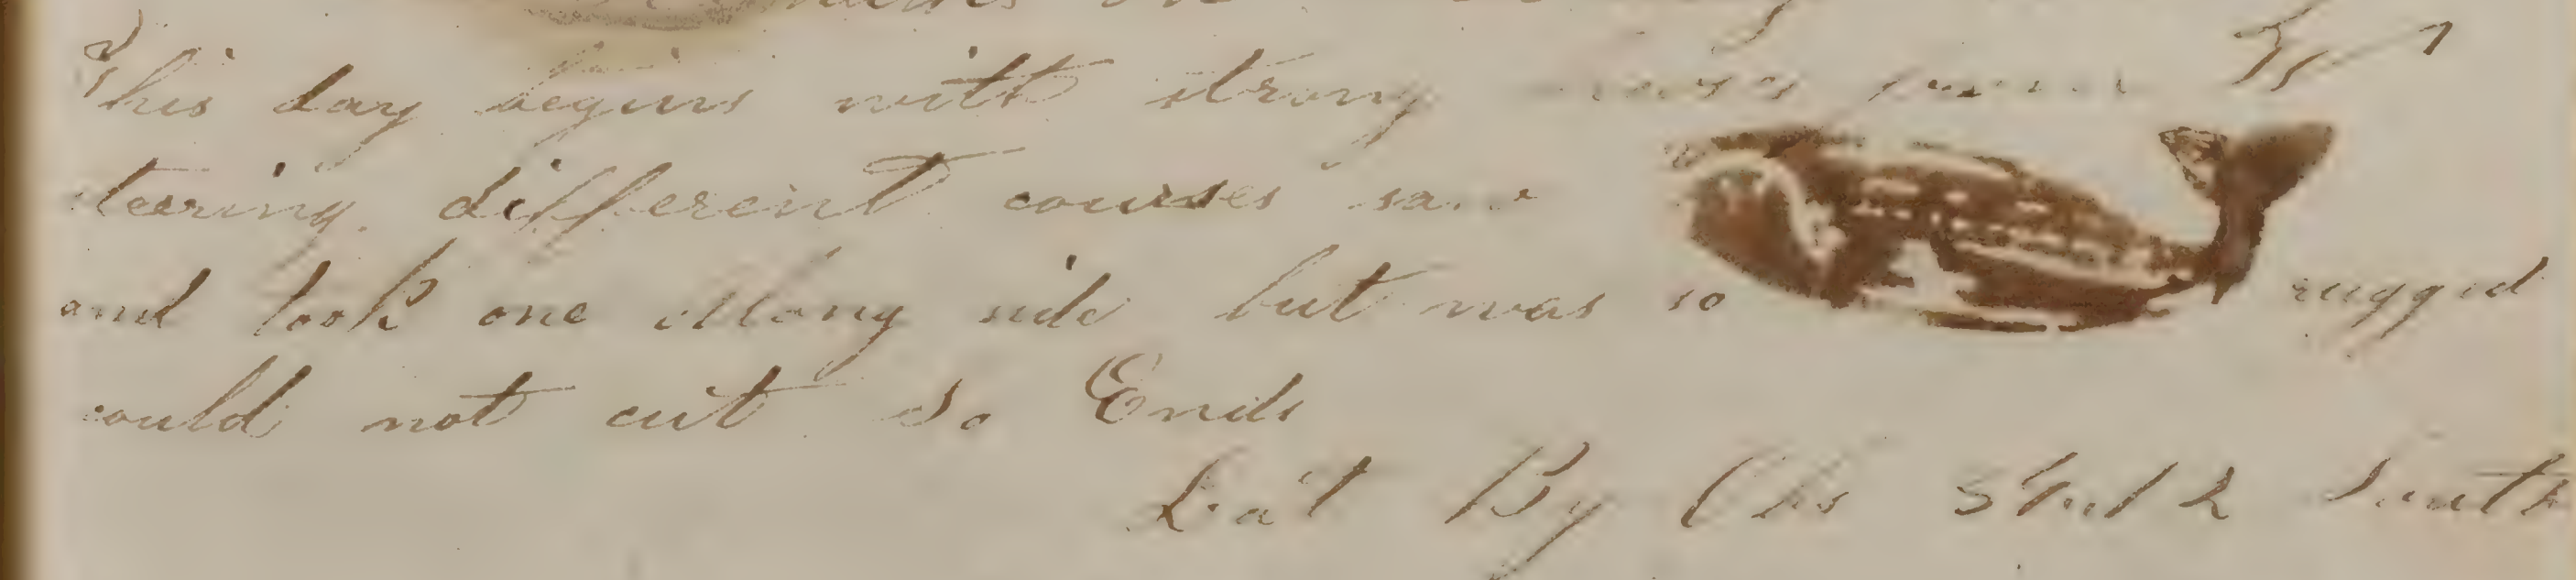 This day begins with strong from
teering different courses saw
and took one allong side but was so rugged
could not cut So Ends
Lat By Obs South